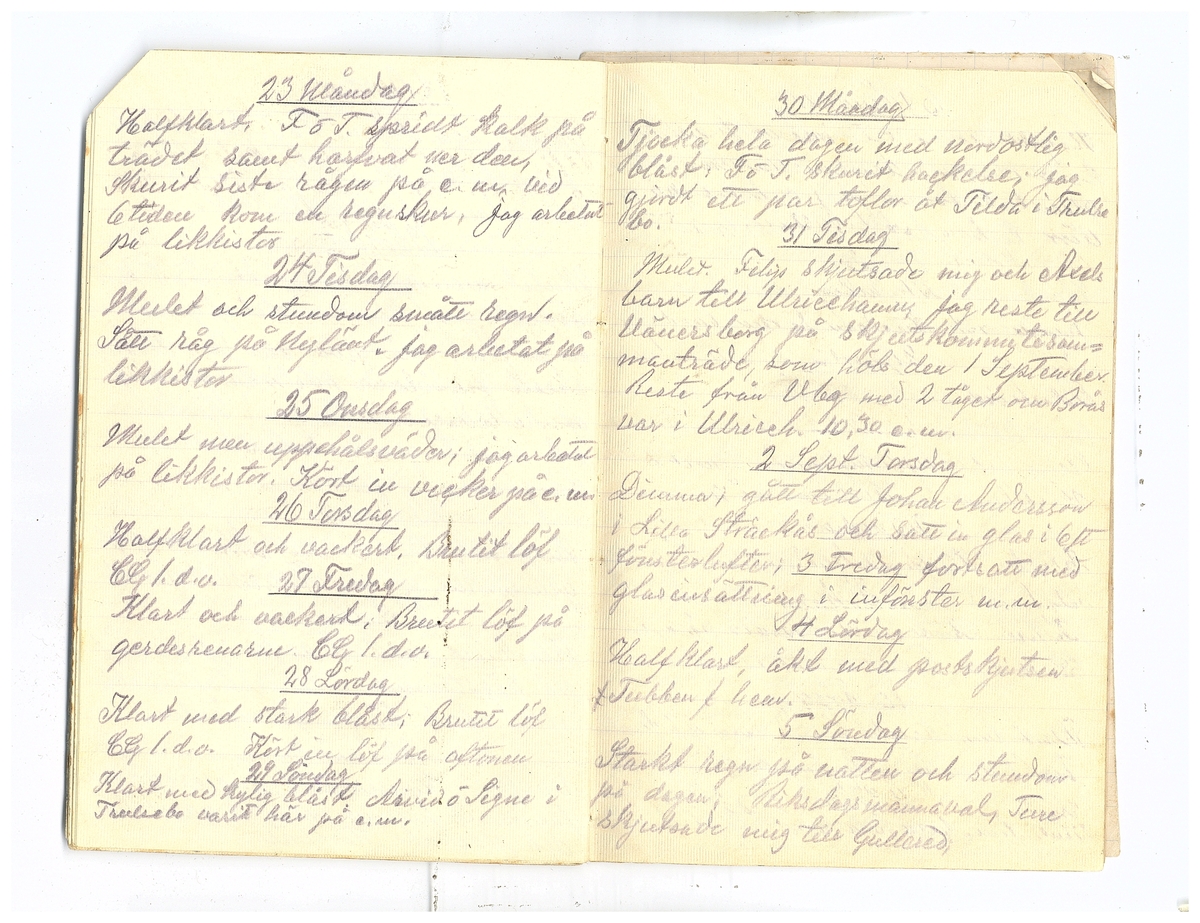 23 Måndag
Halfklart. F o T. spridt kalk på
trädet samt harfvat ner den,
Skurit siste rågen på e.m. vid
6 tiden kom en regnskur, jag arbetat
på likkistor
24 Tisdag
Mulet och stundom smått regn.
Sått råg på Nylänt. jag arbetat på
likkistor
25 Onsdag
Mulet men uppehålsväder; jag arbetat
på likkistor. Kört in vicker på e.m.
26 Torsdag
Halfklart och vackert. Brutit löf
CG l.d.o.
27 Fredag
Klart och vackert; Brutit löf på
gerdesrenarne. CG l.d.o.
28 Lördag
Klart med stark blåst; Brutit löf
CG l.d.o. Kört in löf på aftonen
29 Söndag
Klart med kylig blåst, Arvid o Signe i
Trulsebo varit här på e.m.
30 Måndag
Tjocka hela dagen med nordostlig
blåst; F o T. skurit hackelse; jag
gjordt ett par toflor åt Tilda i Trulse
bo.
31 Tisdag
Mulet. Felix skjutsade mig och Axels
barn till Ulricehamn, jag reste till
Vänersborg på skjutskommitésam=
manträde, som höls den 1 September.
Reste från Vbg med 2 tåget om Borås
var i Ulriceh. 10,30 e.m.
2 Sept. Torsdag
Dimma; gått till Johan Andersson
i Lilla Sträckås och satt in glas i 6 st
fönsterlufter; 3 Fredag fortsatt med
glasinsättning i infönster m.m.
4 Lördag
Halfklart, åkt med postskjutsen
f Tubben f hem.
5 Söndag
Starkt regn på natten och stundom
på dagen; Riksdagsmannaval, Ture
skjutsade mig till Gullered,